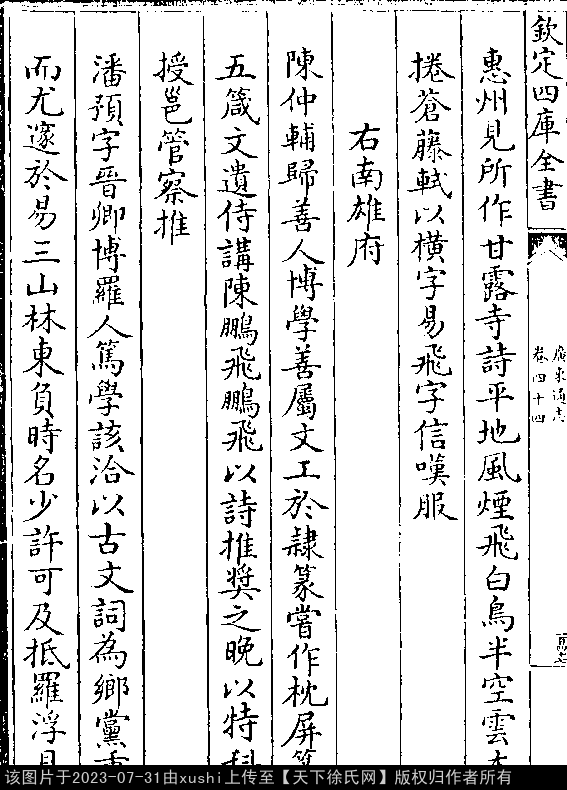 欽定四庫全書
廣東通志
卷四十四
惠州見所作甘露寺詩平地風煙飛白鳥半空雲
捲蒼藤軾以橫字易飛字信嘆服
右南雄府
陳仲輔歸善人博學善屬文工於隷篆嘗作枕屏
五箴文遺侍講陳鵬飛鵬飛以詩推奨之晚以特科
授邕管察推
潘預字晉卿博羅人篤學該洽以古文詞為鄉黨
而尤邃於易三山林東負時名少許可及抵羅浮見
该图片于2023-07-31由xushi上传至【天下徐氏网】版权归作者所有